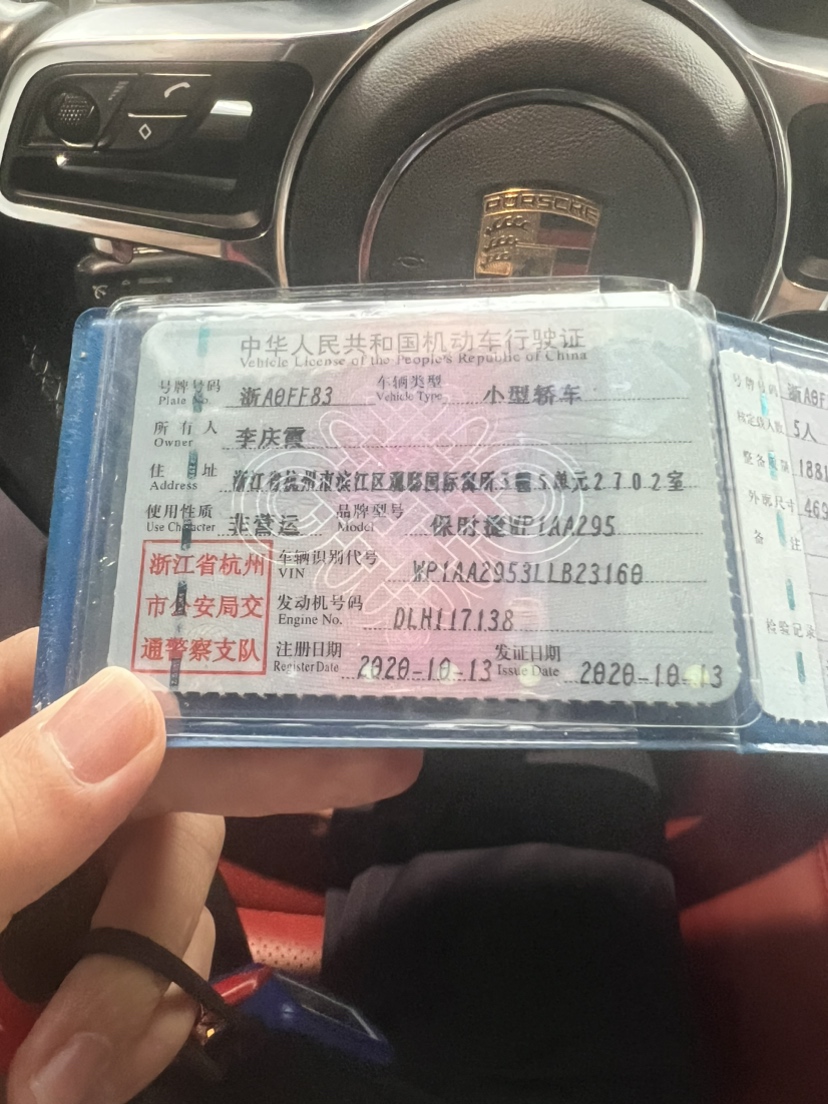 PORSCHE
中华人民共和国机动车行驶证
Vehicle License of the People's Republic of China
号牌号码 浙A0FF83 车辆类型 小型轿车
Plate No. Vehicle Type
所有人 李庆霞
Owner
住址 浙江省杭州市滨江区观邸国际寓所5幢5单元2702室
Address
使用性质 非营运 品牌型号 保时捷WP1AA295
Use Character Model
浙江省杭州
市公安局交
通警察支队
车辆识别代号 WP1AA2953LLB23160
VIN
发动机号码 DLH117138
Engine No.
注册日期 2020-10-13 发证日期 2020-10-13
Register Date Issue Date
号牌号码 浙A0F
核定载人数 5人
整备质量 1881
外廓尺寸 469
备注
检验记录